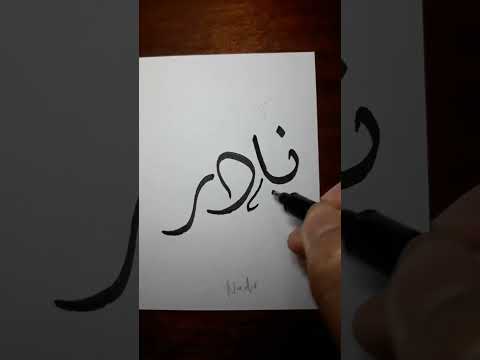 نادر
Nadr